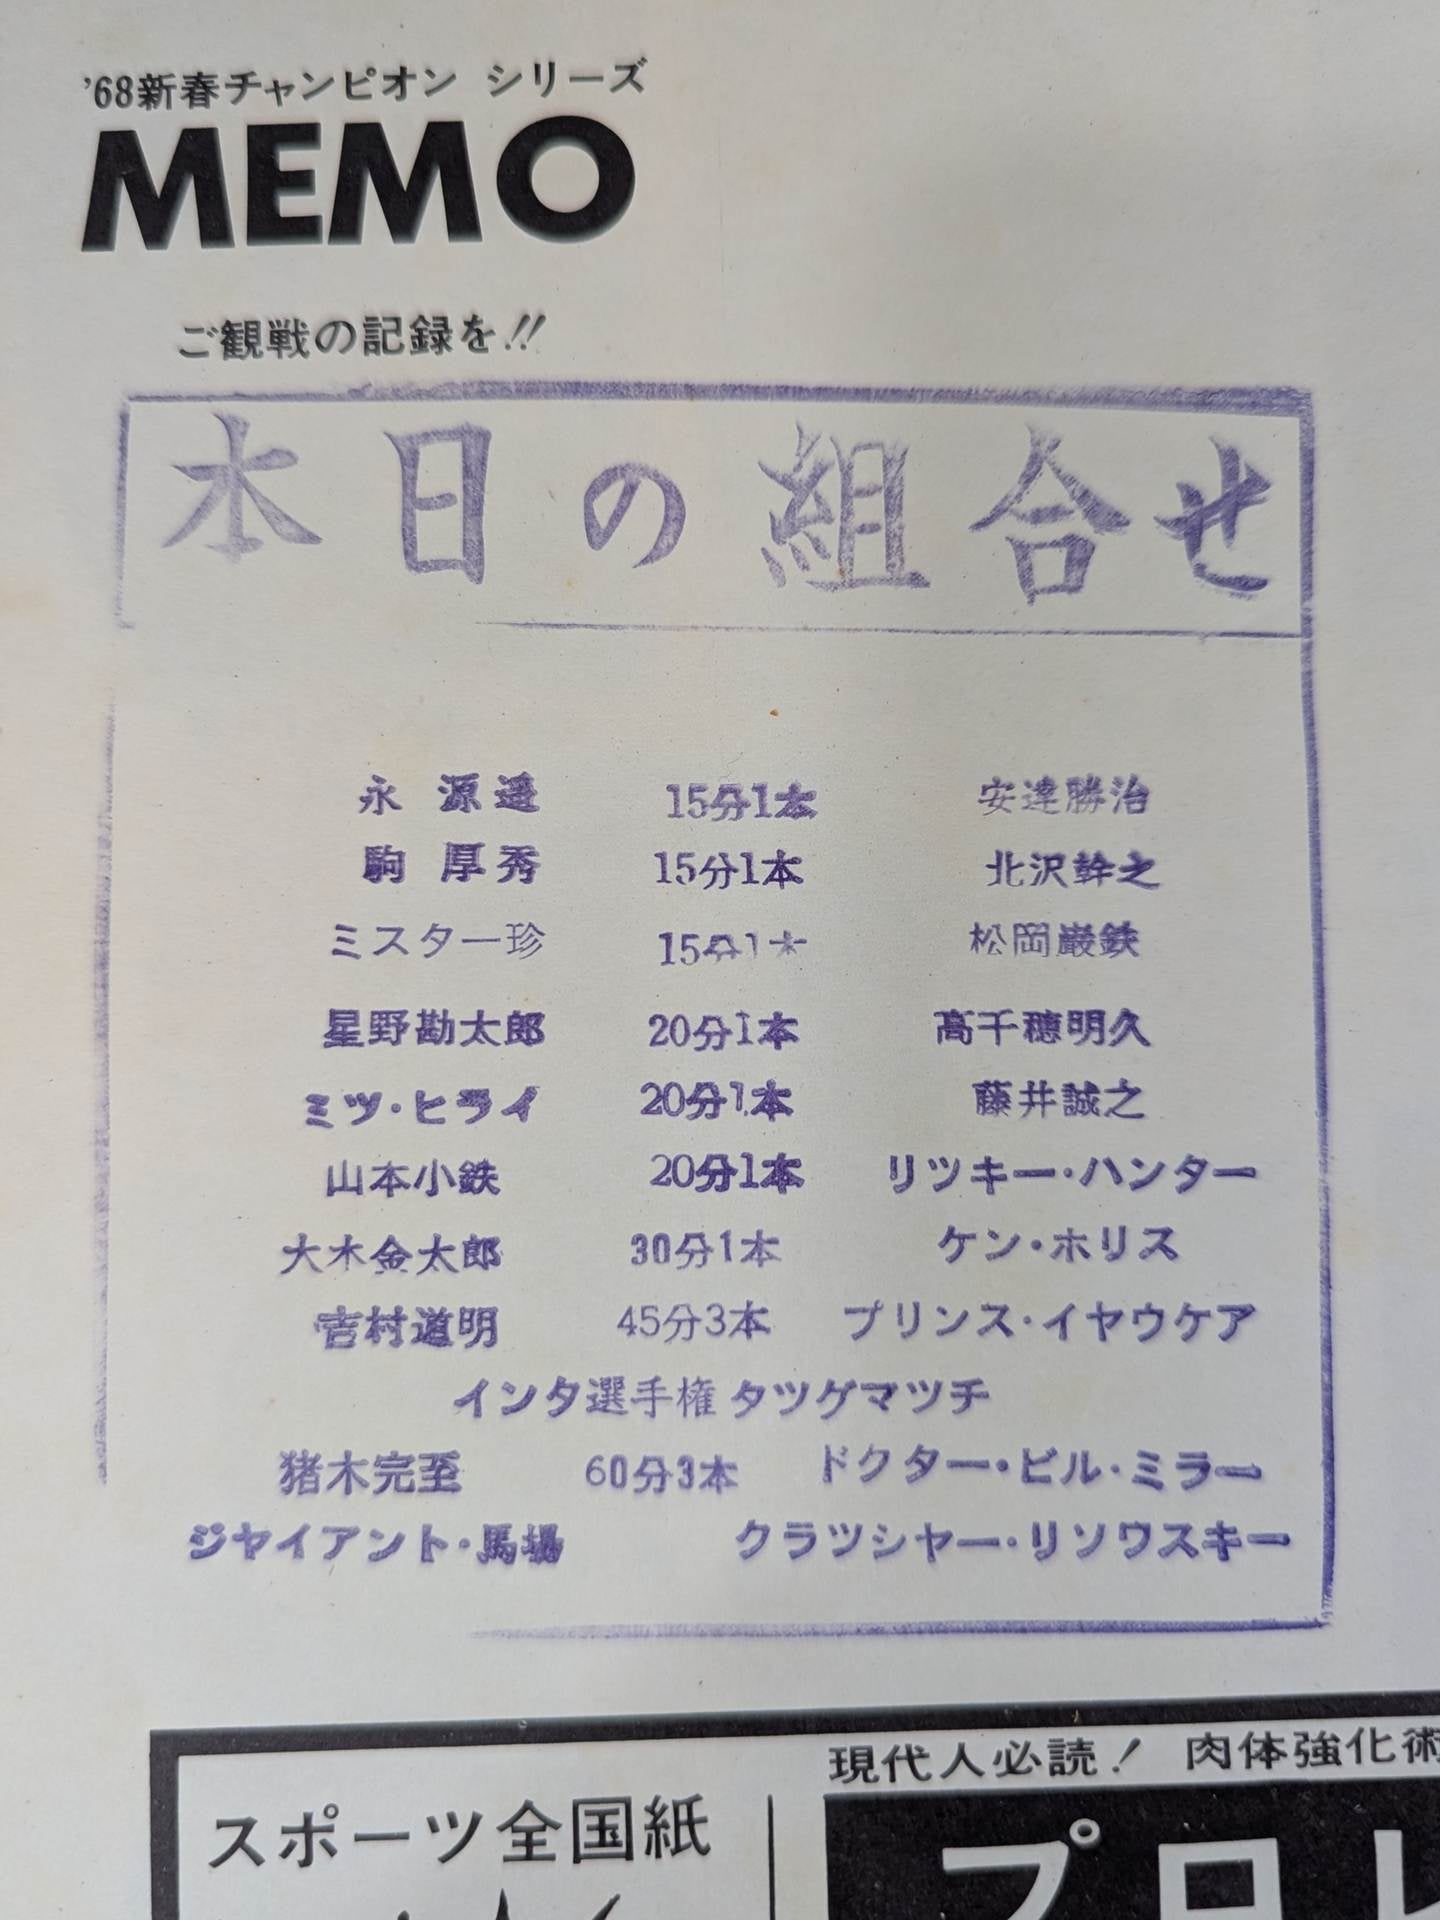 '68新春チャンピオン シリーズ
MEMO
ご観戦の記録を!!
本日の組合せ
永 源遥 15分1本 安達勝治
駒 厚秀 15分1本 北沢幹之
ミスター珍 15分1本 松岡巌鉄
星野勘太郎 20分1本 高千穂明久
ミツ・ヒライ 20分1本 藤井誠之
山本小鉄 20分1本 リツキー・ハンター
大木金太郎 30分1本 ケン・ホリス
吉村道明 45分3本 プリンス・イヤウケア
インタ選手権タツグマツチ
猪木完至 60分3本 ドクター・ビル・ミラー
ジヤイアント・馬場 クラツシヤー・リソワスキー
現代人必読! 肉体強化術
スポーツ全国紙
プロレ